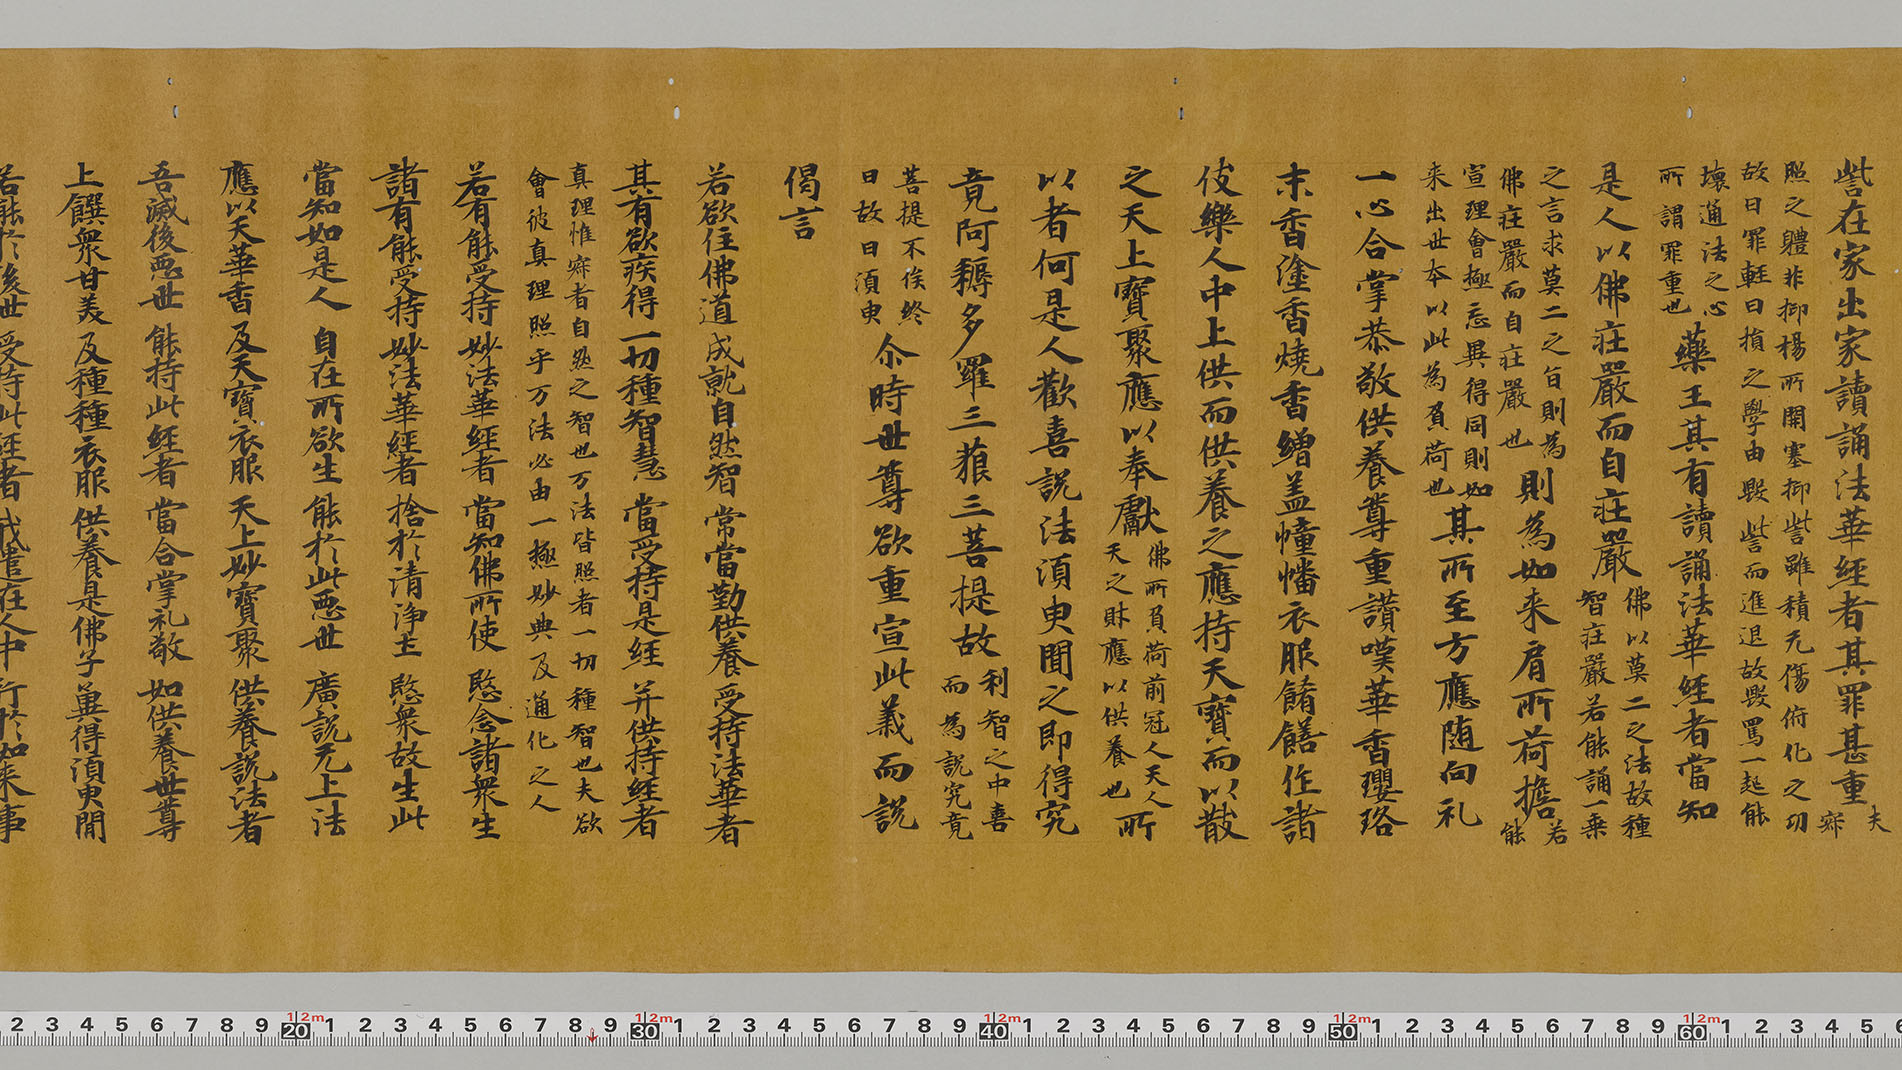 訾在家出家讀誦法華經者其罪甚重夫寂
照之軆非抑楊所開塞抑訾雖積无傷俯化之功
故曰罪輕曰損之學由毀訾而進退故毀罵一起能
壞通法之心
所謂罪重也藥王其有讀誦法華經者當知
是人以佛莊嚴而自莊嚴佛以莫二之法故種
智莊嚴若能誦一乗
之言求莫二之旨則為
佛莊嚴而自莊嚴也則為如来肩所荷擔若能
宣理會極忘異得同則如
来出世本以此為肩荷也其所至方應随向礼
一心合掌恭敬供養尊重讃嘆華香瓔珞
末香塗香燒香繒盖幢幡衣服餚饍作諸
伎樂人中上供而供養之應持天寶而以散
之天上寶聚應以奉獻佛所肩荷前冠人天人
天之財應以供養也所
以者何是人歡喜說法湏臾聞之即得究
竟阿耨多羅三藐三菩提故利智之中喜
而為説究竟
菩提不俟終
日故曰湏臾尒時世尊欲重宣此義而說
偈言
若欲住佛道 成就自然智 常當勤供養 受持法華者
其有欲疾得 一切種智慧 當受持是経 并供持経者
真理惟寂者自然之智也万法皆照者一切種智也夫欲
會彼真理照乎万法必由一極妙典及通化之人
若有能受持 妙法華経者 當知佛所使 愍念諸衆生
諸有能受持 妙法華経者 捨於清浄土 愍衆故生此
當知如是人 自在所欲生 能於此悪世 廣説无上法
應以天華香 及天寶衣服 天上妙寶聚 供養説法者
吾滅後悪世 能持此経者 當合掌礼敬 如供養世尊
上饌衆甘美 及種種衣服 供養是佛子 冀得湏臾聞
若能於後世 受持此経者 我遣在人中 行於如来事
2 3 4 5 6 7 8 9 20 1 2 3 4 5 6 7 8 9 30 1 2 3 4 5 6 7 8 9 40 1 2 3 4 5 6 7 8 9 50 1 2 3 4 5 6 7 8 9 60 1 2 3 4 5 6
12m 12m 12m 12m 12m